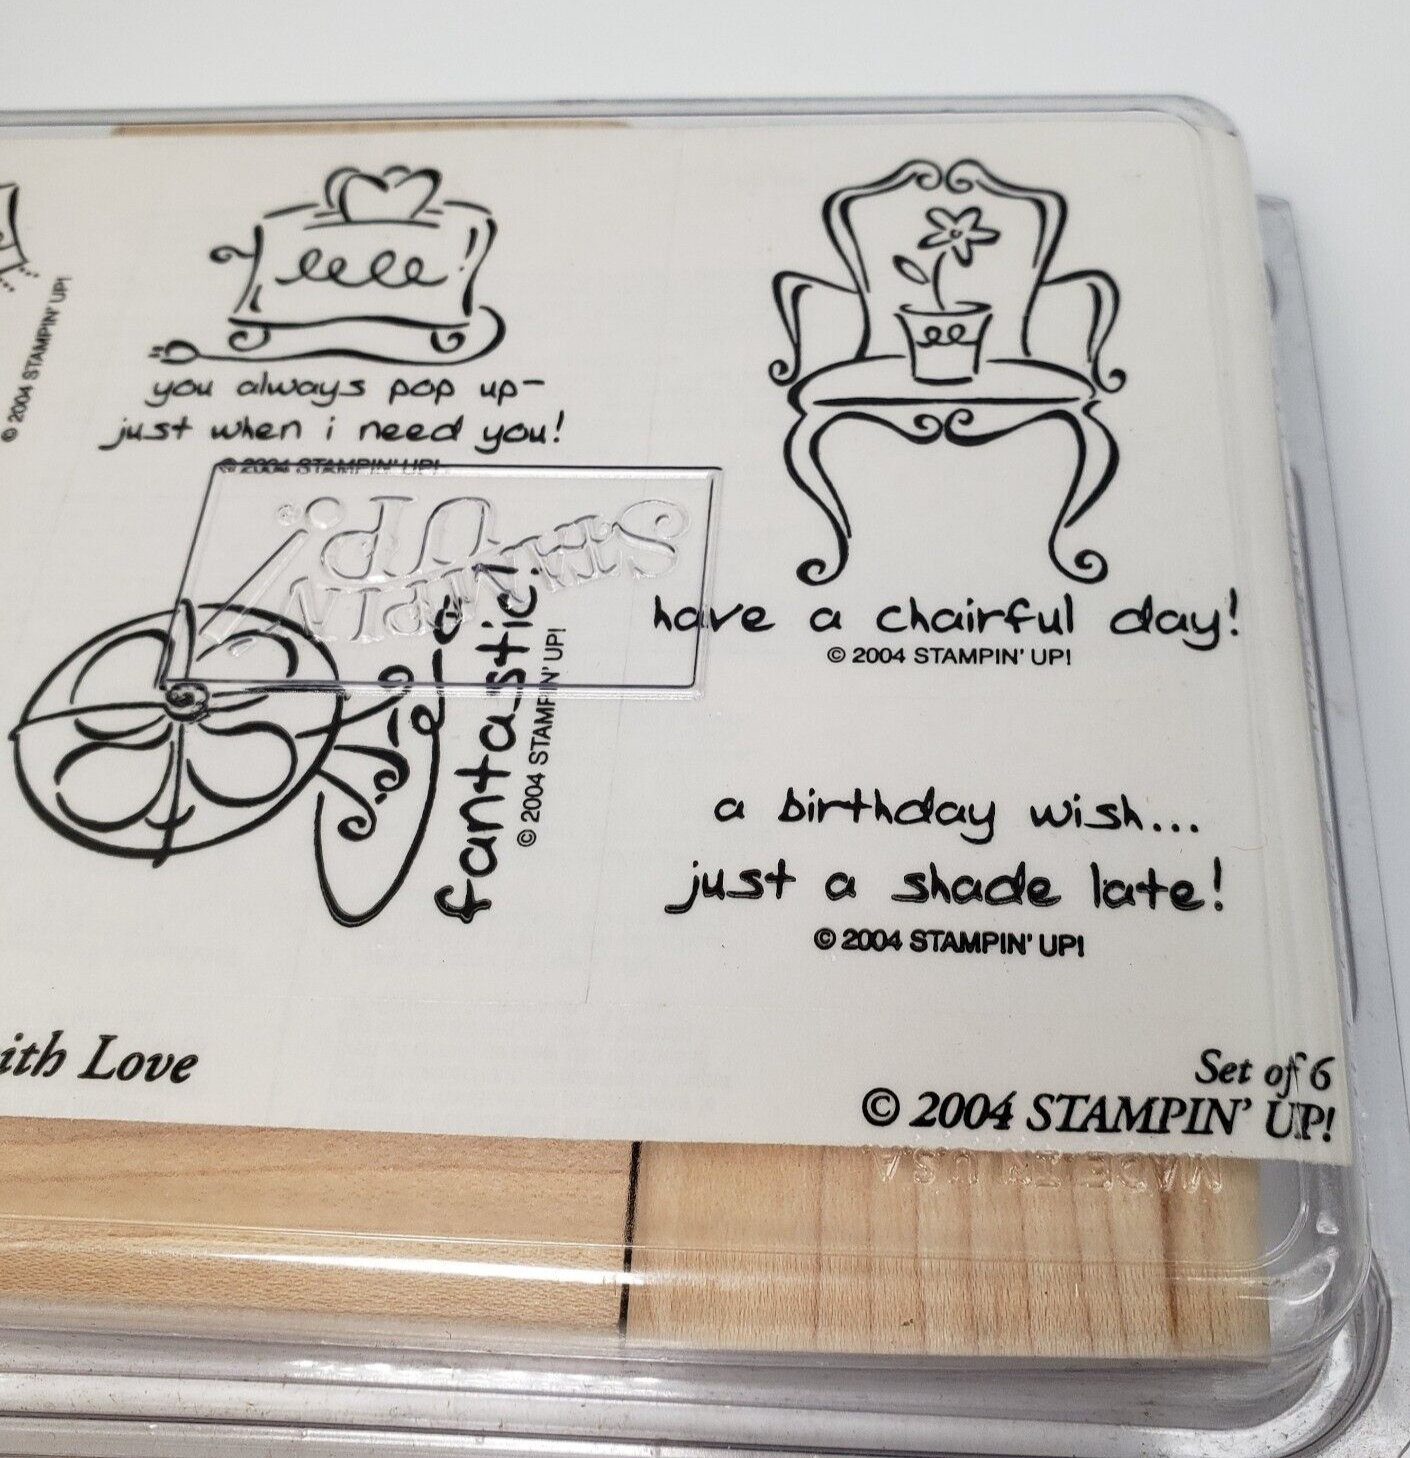 © 2004 STAMPIN' UP!
you always pop up-
just when i need you!
© 2004 STAMPIN' UP!
STAMPIN' UP!
fantastic!
© 2004 STAMPIN' UP!
have a chairful day!
© 2004 STAMPIN' UP!
a birthday wish...
just a shade late!
© 2004 STAMPIN' UP!
ith Love
Set of 6
© 2004 STAMPIN' UP!
MADE IN U.S.A.